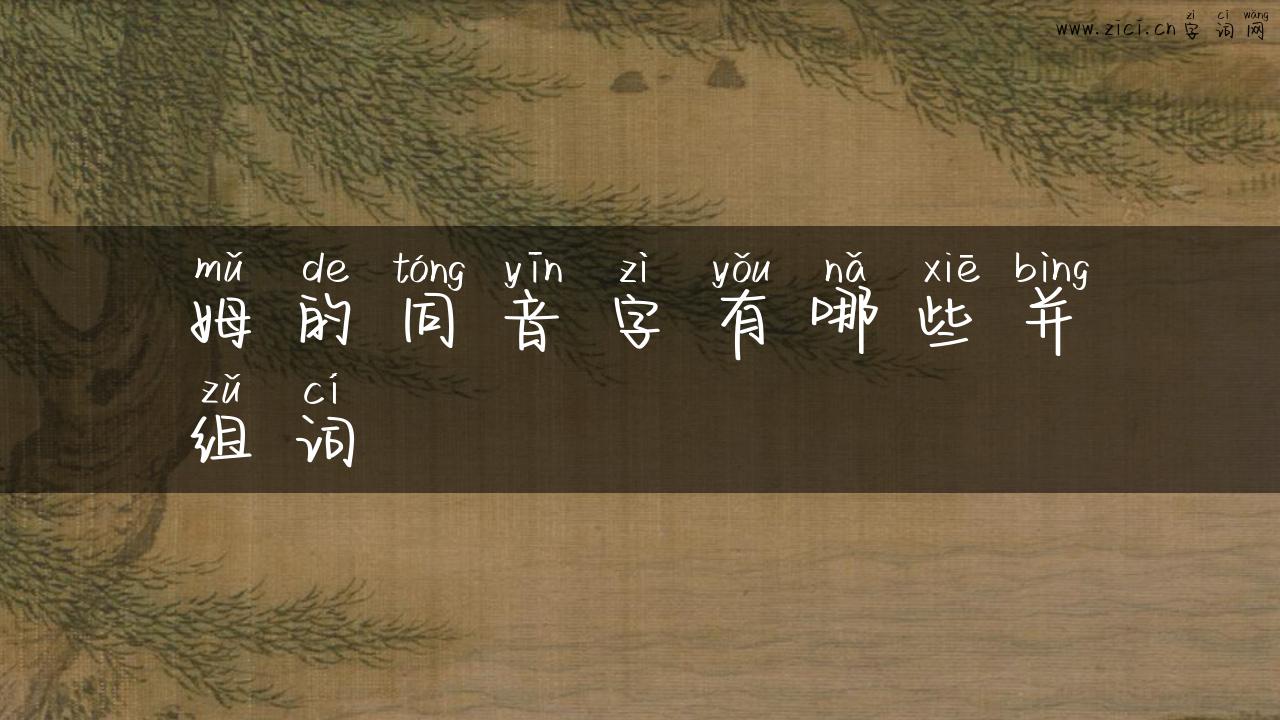 zì cí wǎng
www.zici.cn 字词网
mǔ de tóng yīn zì yǒu nǎ xiē bìng
姆的同音字有哪些并
zǔ cí
组词